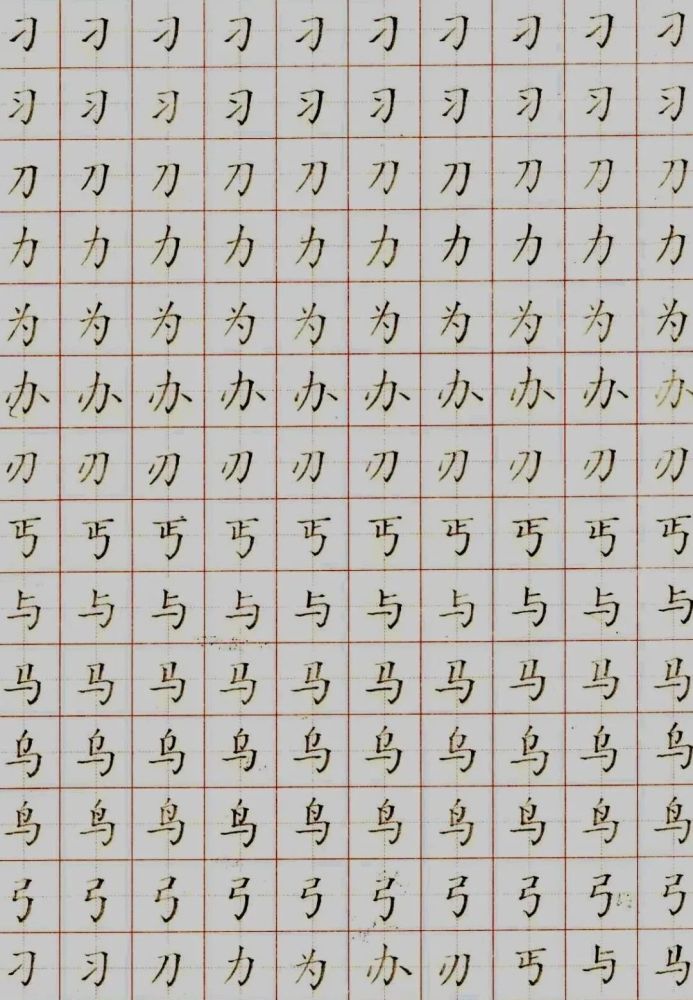 刁刁刁刁刁刁刁刁刁刁
习习习习习习习习习习
刀刀刀刀刀刀刀刀刀刀
力力力力力力力力力力
为为为为为为为为为为
办办办办办办办办办办
刃刃刃刃刃刃刃刃刃刃
丐丐丐丐丐丐丐丐丐丐
与与与与与与与与与与
马马马马马马马马马马
乌乌乌乌乌乌乌乌乌乌
鸟鸟鸟鸟鸟鸟鸟鸟鸟鸟
弓弓弓弓弓弓弓弓弓弓
刁习刀力为办刃丐与马